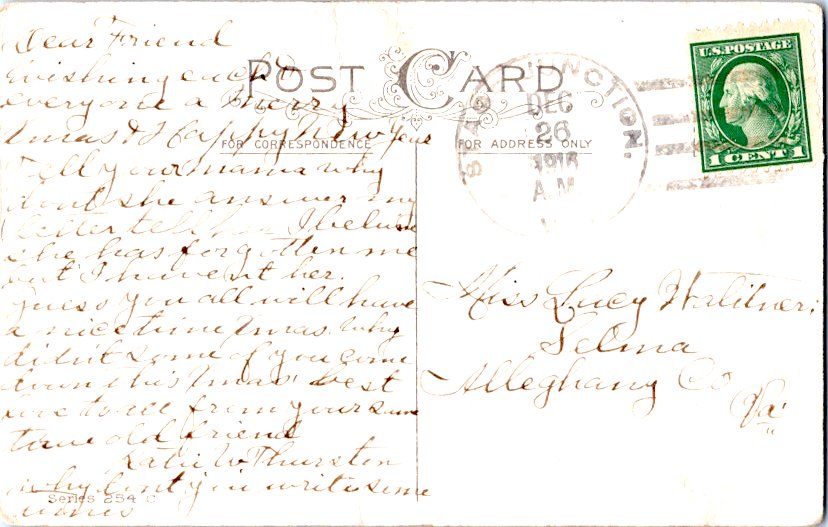 Dear Friend
Wishing each &
everyone a merry
Xmas & Happy New Year
Tell your mama why
dont she answer my
letter tell her I believe
she has forgotten me
but I haven't her.
Guess you all will have
a nice time Xmas. Why
didn't some of you come
down this Xmas best
love to all from your same
true old friend
Katie W Thurston
why dont you write some
times
Series 254 C
POST CARD
FOR CORRESPONDENCE
FOR ADDRESS ONLY
JUNCTION.
DEC
26
1916
A.M.
U.S. POSTAGE
1 CENT 1
Miss Lucy
Selma
Alleghany Co
Va